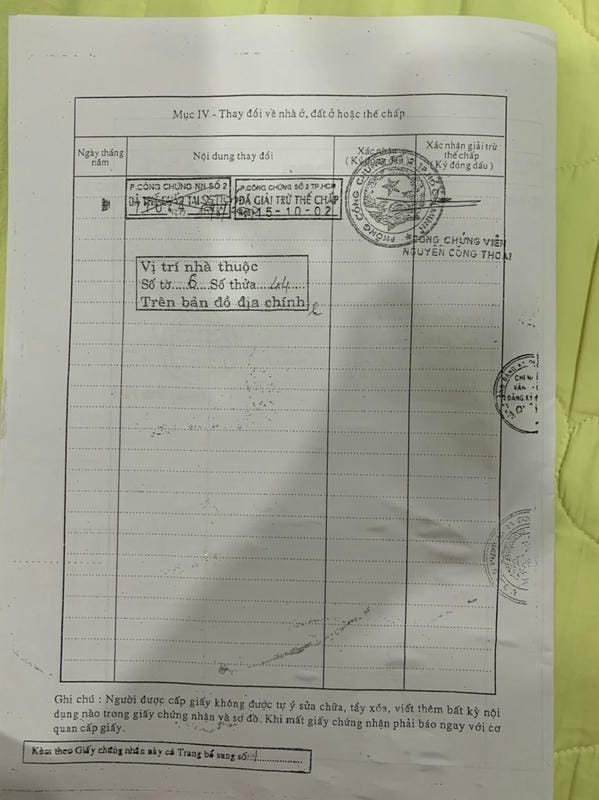 Mục IV - Thay đổi về nhà ở, đất ở hoặc thế chấp
Ngày tháng năm
Nội dung thay đổi
Xác nhận (Ký đóng dấu)
Xác nhận giải trừ thế chấp (Ký đóng dấu)
P.CÔNG CHỨNG NN SỐ 2
P.CÔNG CHỨNG SỐ 2 TP.HCM
ĐÃ GIẢI TRỪ THẾ CHẤP
15-10-02
PHÒNG CÔNG CHỨNG
CÔNG CHỨNG VIÊN
NGUYỄN CÔNG THOẠI
Vị trí nhà thuộc
Số tờ.....6....Số thửa.........
Trên bản đồ địa chính
CHI N
VĂN
ĐĂNG KÝ
Ghi chú : Người được cấp giấy không được tự ý sửa chữa, tẩy xóa, viết thêm bất kỳ nội
dung nào trong giấy chứng nhận và sơ đồ. Khi mất giấy chứng nhận phải báo ngay với cơ
quan cấp giấy.
Kèm theo Giấy chứng nhận này có Trang bổ sung số: